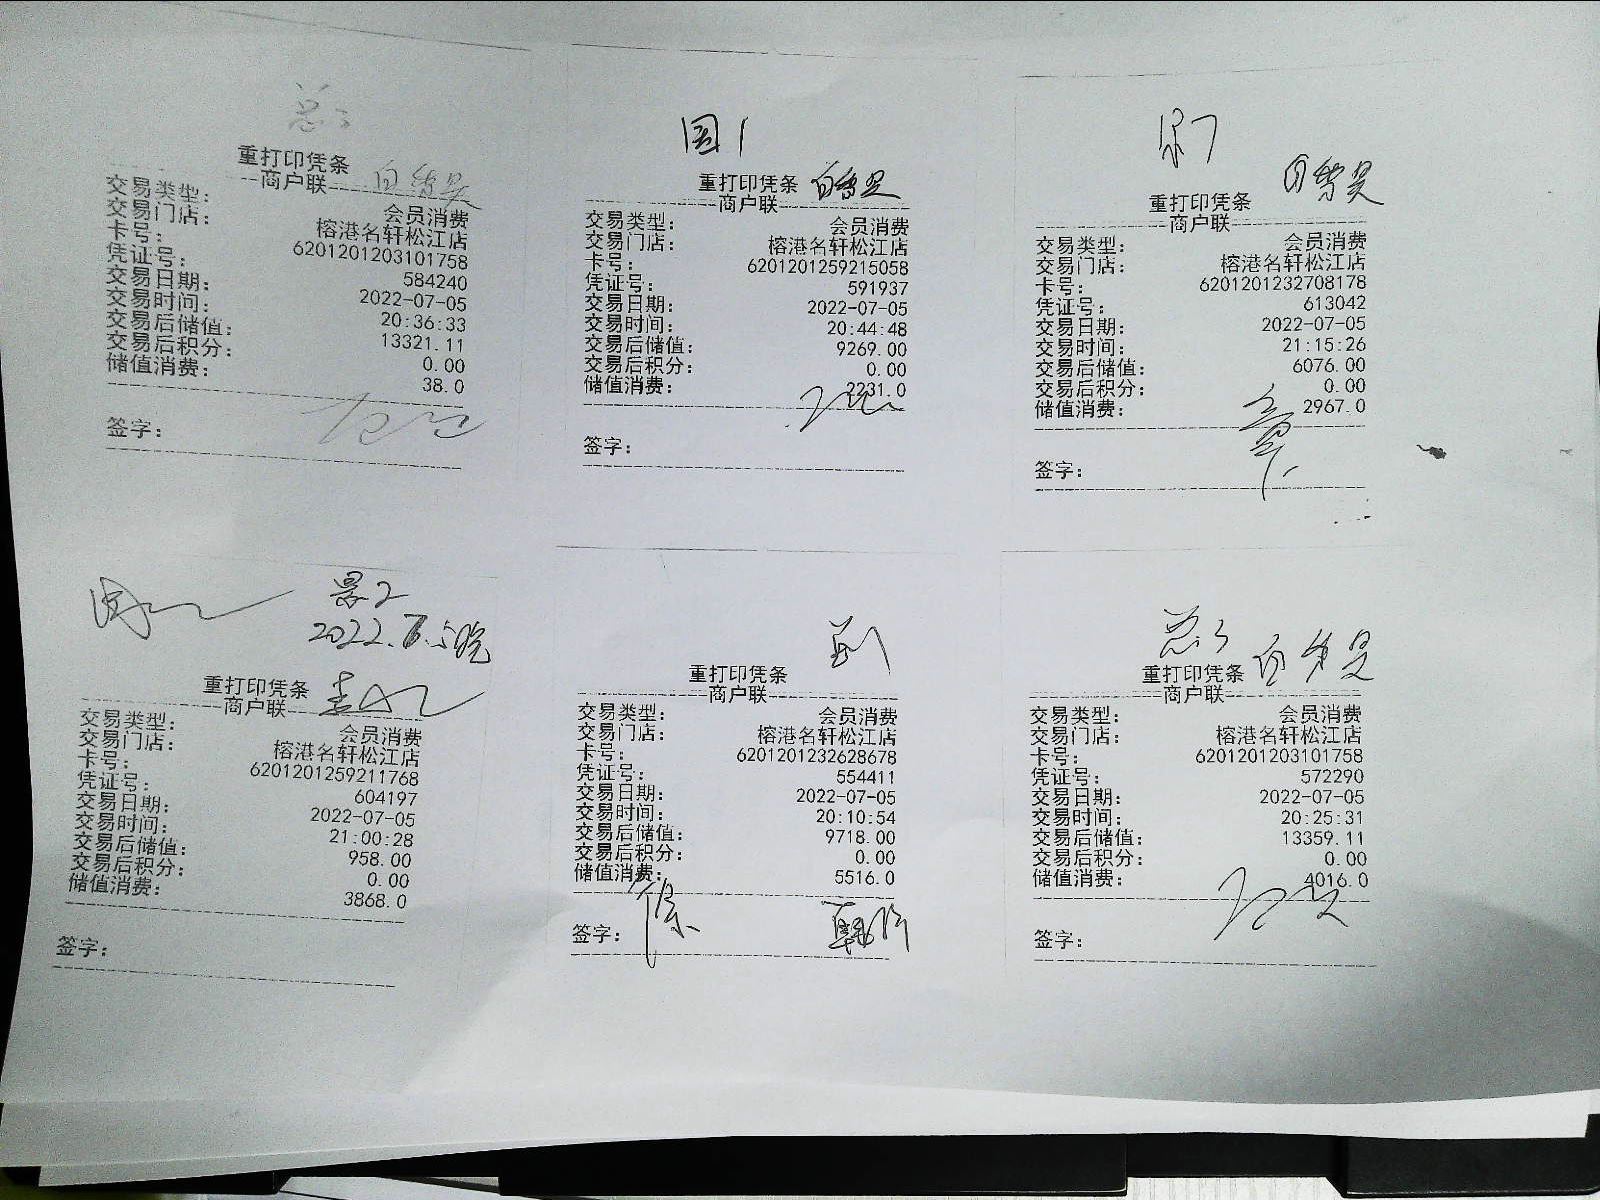 总3
重打印凭条
商户联
交易类型: 会员消费
交易门店: 榕港名轩松江店
卡号: 6201201203101758
凭证号: 584240
交易日期: 2022-07-05
交易时间: 20:36:33
交易后储值: 13321.11
交易后积分: 0.00
储值消费: 38.0
签字:
国1
重打印凭条
商户联
交易类型: 会员消费
交易门店: 榕港名轩松江店
卡号: 6201201259215058
凭证号: 591937
交易日期: 2022-07-05
交易时间: 20:44:48
交易后储值: 9269.00
交易后积分: 0.00
储值消费: 2231.0
签字:
重打印凭条
商户联
交易类型: 会员消费
交易门店: 榕港名轩松江店
卡号: 6201201232708178
凭证号: 613042
交易日期: 2022-07-05
交易时间: 21:15:26
交易后储值: 6076.00
交易后积分: 0.00
储值消费: 2967.0
签字:
景2
2022.7.5晚
重打印凭条
商户联
交易类型: 会员消费
交易门店: 榕港名轩松江店
卡号: 6201201259211768
凭证号: 604197
交易日期: 2022-07-05
交易时间: 21:00:28
交易后储值: 958.00
交易后积分: 0.00
储值消费: 3868.0
签字:
重打印凭条
商户联
交易类型: 会员消费
交易门店: 榕港名轩松江店
卡号: 6201201232628678
凭证号: 554411
交易日期: 2022-07-05
交易时间: 20:10:54
交易后储值: 9718.00
交易后积分: 0.00
储值消费: 5516.0
签字:
总3
重打印凭条
商户联
交易类型: 会员消费
交易门店: 榕港名轩松江店
卡号: 6201201203101758
凭证号: 572290
交易日期: 2022-07-05
交易时间: 20:25:31
交易后储值: 13359.11
交易后积分: 0.00
储值消费: 4016.0
签字: